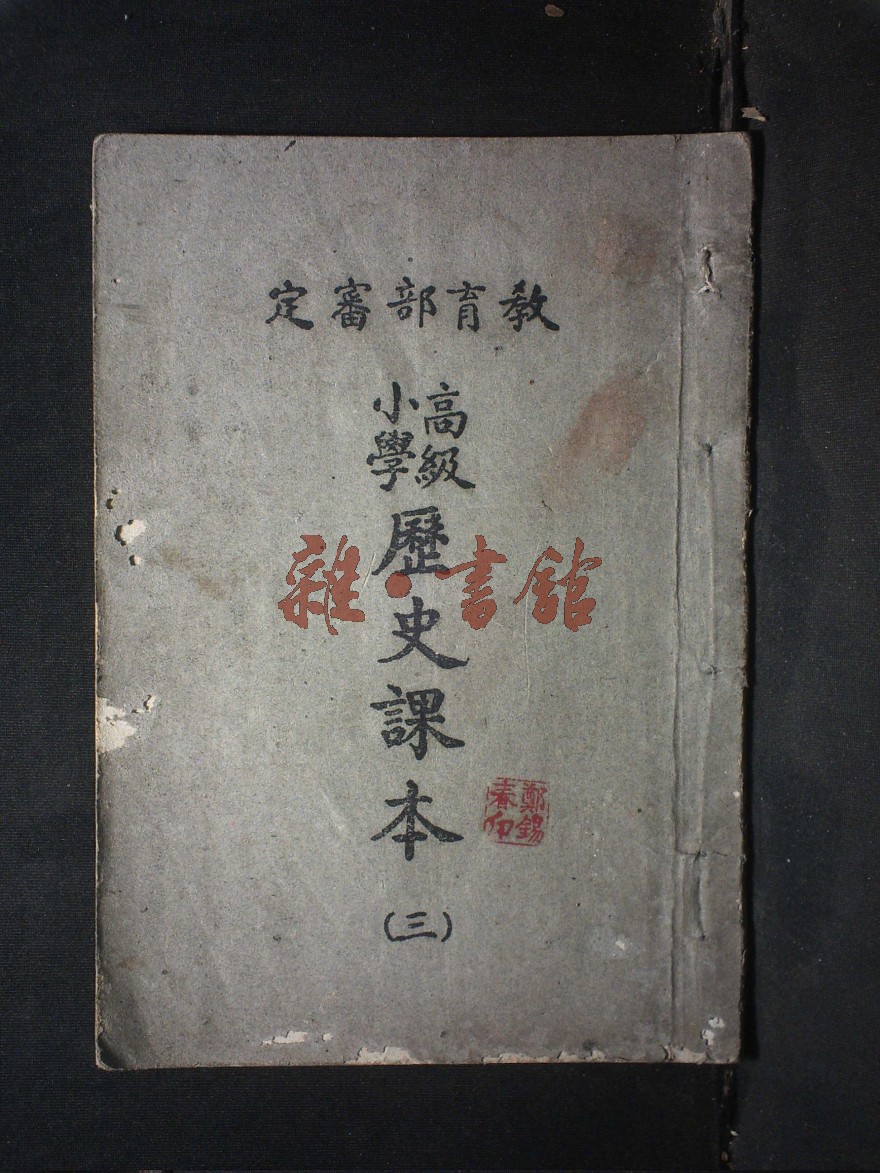 教育部審定
高級
小學
歷史課本
(三)
鄭錫
春印
雜·書館